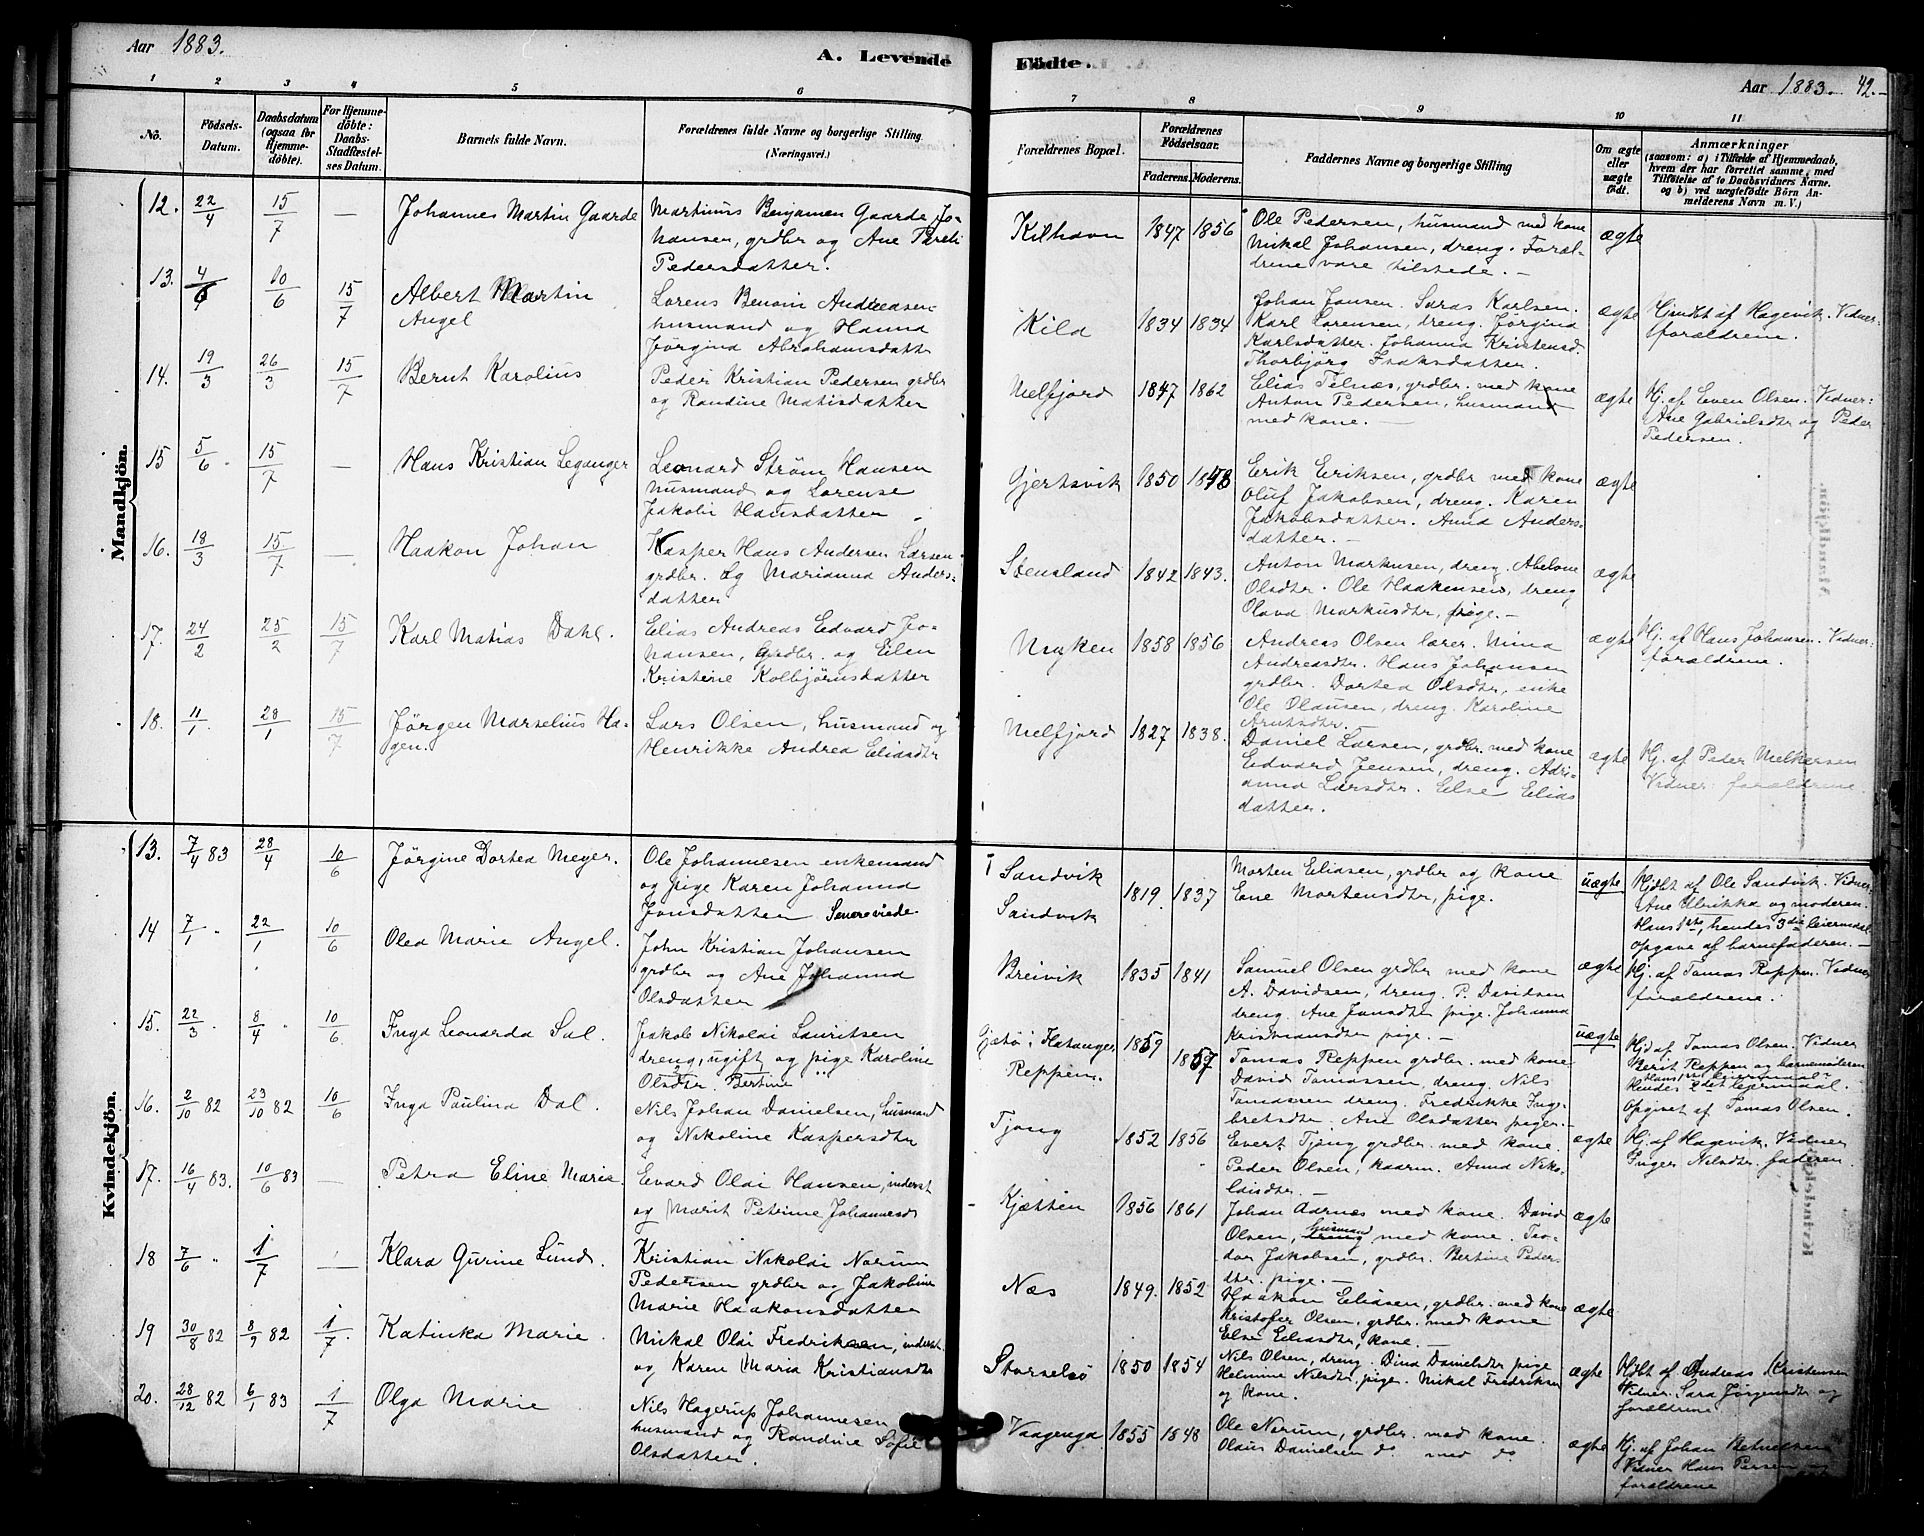 Aar 1883.
A. Levende Födte.
Aar 1883. 42.
1 2 3 4 5 6 7 8 9 10 11
No.
Födsels-
Datum.
Daabsdatum
(ogsaa för
Hjemme-
döbte).
For Hjemme-
döbte:
Daabs-
Stadfæstel-
ses Datum.
Barnets fulde Navn.
Forældrenes fulde Navne og borgerlige Stilling
(Næringsvei.)
Forældrenes Bopæl.
Forældrenes
Födselsaar.
Faderens. Moderens.
Faddernes Navne og borgerlige Stilling
Om ægte
eller
uægte
födt.
Anmærkninger
(saasom: a) i Tilfælde af Hjemmedaab,
hvem der har forrettet samme, med
Tilföielse af to Daabsvidners Navne,
og b) ved uægtefödte Börn An-
melderens Navn m. V.)
Mandkjön.
12. 22/4 15/7 — Johannes Martin Gaarde
Martinus Benjamen Gaarde Jo-
hansen, grdbr og Ane
Pedersdatter.
Kilhavn 1847 1856
Ole Pedersen, husmand med kone
Mikal Johansen, dreng. Foræl-
drene vare tilstede. —
ægte
13. 4/6 10/6 15/7 Albert Martin
Angel
Lorens Benoin Andreasen
husmand og Hanna
Jørgina Abrahamsdatt
Kila 1834 1834
Johan Jansen. Saras Karlsen.
Karl Lorensen, dreng. Jørgina
Karlsdatter. Johanna Kristensd.
Thorbjørg Isaksdatter.
ægte
Hjmdbt af Hagevik. Vidner:
forældrene.
14. 19/3 26/3 15/7 Bernt Karolius
Peder Kristian Pedersen grdbr
og Randine Matisdatter
Melfjord 1847 1862
Elias Telnæs, grdbr. med kone
Anton Pedersen, husmand
med kone. —
ægte
Hj. af Even Olsen. Vidner:
Ane Gabrielsdtr og Peder
Pedersen.
15 5/6 15/7 — Hans Kristian Leganger
Leonard Strøm Hansen
husmand og Lorense
Jakobi Hansdatter
Gjertsvik 1850 1848
Erik Eriksen, grdbr med kone
Oluf Jakobsen, dreng. Karen
Jakobsdatter. Anna Anders-
datter. —
ægte
16. 18/3 15/7 — Haakon Johan
Kasper Hans Andersen Larsen
grdbr. og Marianna Anders-
datter
Stensland 1842 1843.
Anton Markusen, dreng. Abelone
Olsdtr. Ole Haakensen, dreng
Olava Markusdtr, pige. —
ægte
17. 24/2 25/2 15/7 Karl Matias Dahl.
Elias Andreas Edvard Jo-
hansen, grdbr. og Elen
Kristine Kolbjørnsdatter
Nryken 1858 1856
Andreas Olsen lærer. Nina
Andreasdtr. Hans Johansen
grdbr. Dortea Olsdtr, enke
Ole Olausen, dreng. Karoline
Arntsdtr. —
ægte
Hj. af Hans Johansen. Vidner:
forældrene.
18. 11/1 28/1 15/7 Jørgen Marselius Ha-
gen.
Lars Olsen, husmand og
Henrikke Andrea Eliasdtr
Melfjord 1827 1838.
Daniel Larsen, grdbr. med kone
Edvard Jensen, dreng. Adri-
anna Larsdtr. Else Elias
datter.
ægte
Hj. af Peder Melkersen
Vidner: forældrene.
Kvindekjön.
13. 7/4 83 28/4 10/6 Jørgine Dortea Meyer.
Ole Johannesen enkemand
og pige Karen Johanna
Jonsdatter
Sandvik
Sandvik 1819. 1837
Morten Eliasen, grdbr og kone
Ene Mortensdtr, pige.
uægte
Hjdbt af Ole Sandvik. Vidner:
Ane Ulrikka og moderen.
Hans 1ste, hendes 3die leiermaal
opgave af barnefaderen. —
14 7/1 " 22/1 10/6 Olea Marie Angel.
John Kristian Johansen
grdbr og Ane Johanna
Olsdatter
Breivik 1835 1841
Samuel Olsen grdbr med kone
A. Davidsen, dreng. P. Davidsen
dreng. Ane Jansdtr pige. Johanna
Kristiansdtr pige. —
ægte
Hj. af Tomas Reppen. Vidner
forældrene.
15. 22/3 " 8/4 " 10/6 Inga Leonarda Sal.
Jakob Nikolai Lauritsen
dreng, ugift og pige Karoline
Olsdtr Bertine
Gjetø i
Reppen. 1859 1857
Tomas Reppen grdbr. med kone
David Tomassen, dreng. Nils
Tomassen dreng. Fredrikke Inge-
bretsdtr. Ane Olsdatter piger. —
uægte
Hjd af Tomas Olsen. Vidner
Berit Reppen og barnemoderen
Hans 1ste leiermaal
hendes 2det leiermaal.
Opgivet af Tomas Olsen.
16. 2/10 82 23/10 82 10/6 Inga Paulina Dal.
Nils Johan Danielsen, husmand
og Nikoline Kaspersdtr
Tjong 1852 1856
Evert Tjong grdbr. med kone
Peder Olsen, Anna Niko-
laisdtr. —
ægte
Hj. af Hagevik. Vidner
Inger Nilsdtr. faderen.
17. 16/4 83. 10/6 83 — Petra Eline Marie.
Evard Olai Hansen, inderst
og Marit Petrine Johannesd
Kjætten 1856 1861
Johan Aarnæs med kone. David
Olsen, husmand med kone. Teo-
dor Jakobsen, grdbr. Bertine Peder-
dtr. pige. —
ægte
18 7/6 " 1/7 — Klara Gurine Lund.
Kristian Nikolai Norum
Pedersen grdbr og Jakobine
Marie Haakonsdatter
Næs 1849. 1852
Haakon Eliasen, grdbr. med kone
Kristofer Olsen, grdbr. med kone
Else Eliasdtr, kone. —
ægte
19 30/8 82 8/9 82 1/7. Katinka Marie.
Mikal Olai Fredriksen, inderst
og Karen Maria Kristiansdtr
Storselsø 1850 1854
Nils Olsen, dreng. Dina Danielsdtr pige
Helmine Nilsdtr. pige. Mikal Fredriksen
og kone.
ægte
Hjdbt af Andreas Kristensen
Vidner. Sara Jørgensdtr og
forældrene
20. 28/12 82 6/1 83 1/7 Olga Marie
Nils Hagerup Johannesen
husmand og Randine Sofie
Olsdatter.
Vaagenga 1855 1848
Ole Norum, grdbr. med kone.
Olaus Danielsen do med do.
ægte
Hj. af Johan
Vidner Hans
forældrene